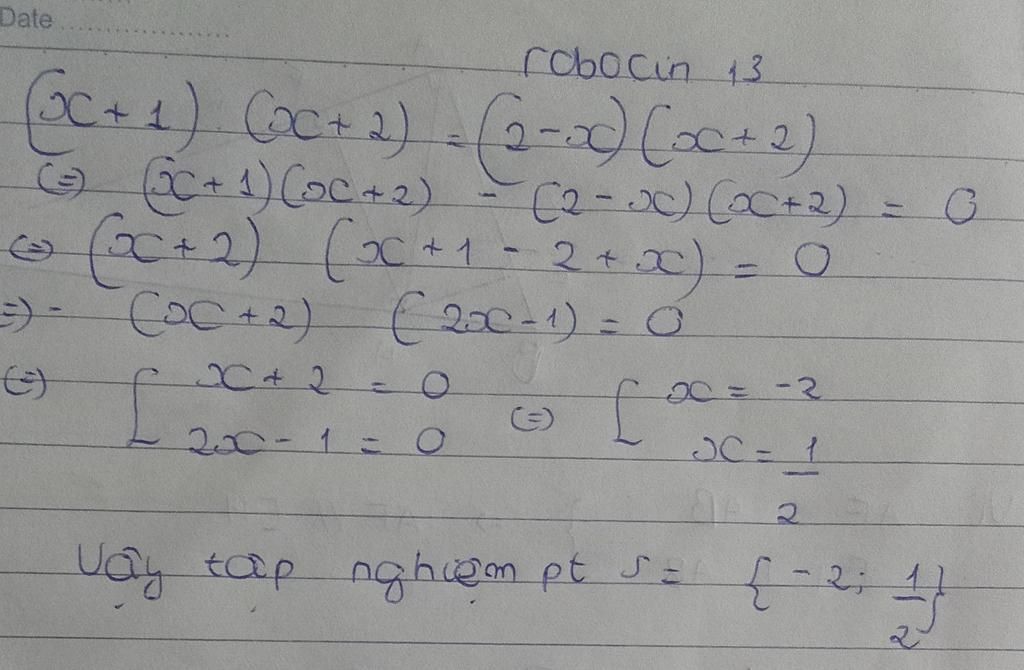 Date
robocin 13
(x+1) (x+2) = (2-x)(x+2)
(=) (x+1)(x+2) - (2-x)(x+2) = 0
(=) (x+2) (x+1-2+x) = 0
=) - (x+2) (2x-1) = 0
(=) [ x+2 = 0 (=) [ x = -2
2x-1 = 0 x = 1/2
Vậy tập nghiệm pt S = { -2; 1/2 }